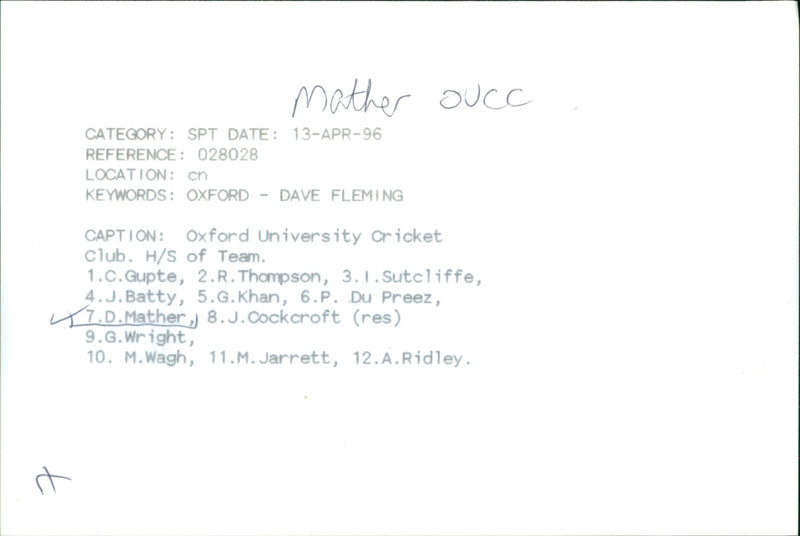 Mather OUCC
CATEGORY: SPT DATE: 13-APR-96
REFERENCE: 028028
LOCATION: cn
KEYWORDS: OXFORD - DAVE FLEMING
CAPTION: Oxford University Cricket
Club. H/S of Team.
1.C.Gupte, 2.R.Thompson, 3.I.Sutcliffe,
4.J.Batty, 5.G.Khan, 6.P. Du Preez,
7.D.Mather, 8.J.Cockcroft (res)
9.G.Wright,
10. M.Wagh, 11.M.Jarrett, 12.A.Ridley.